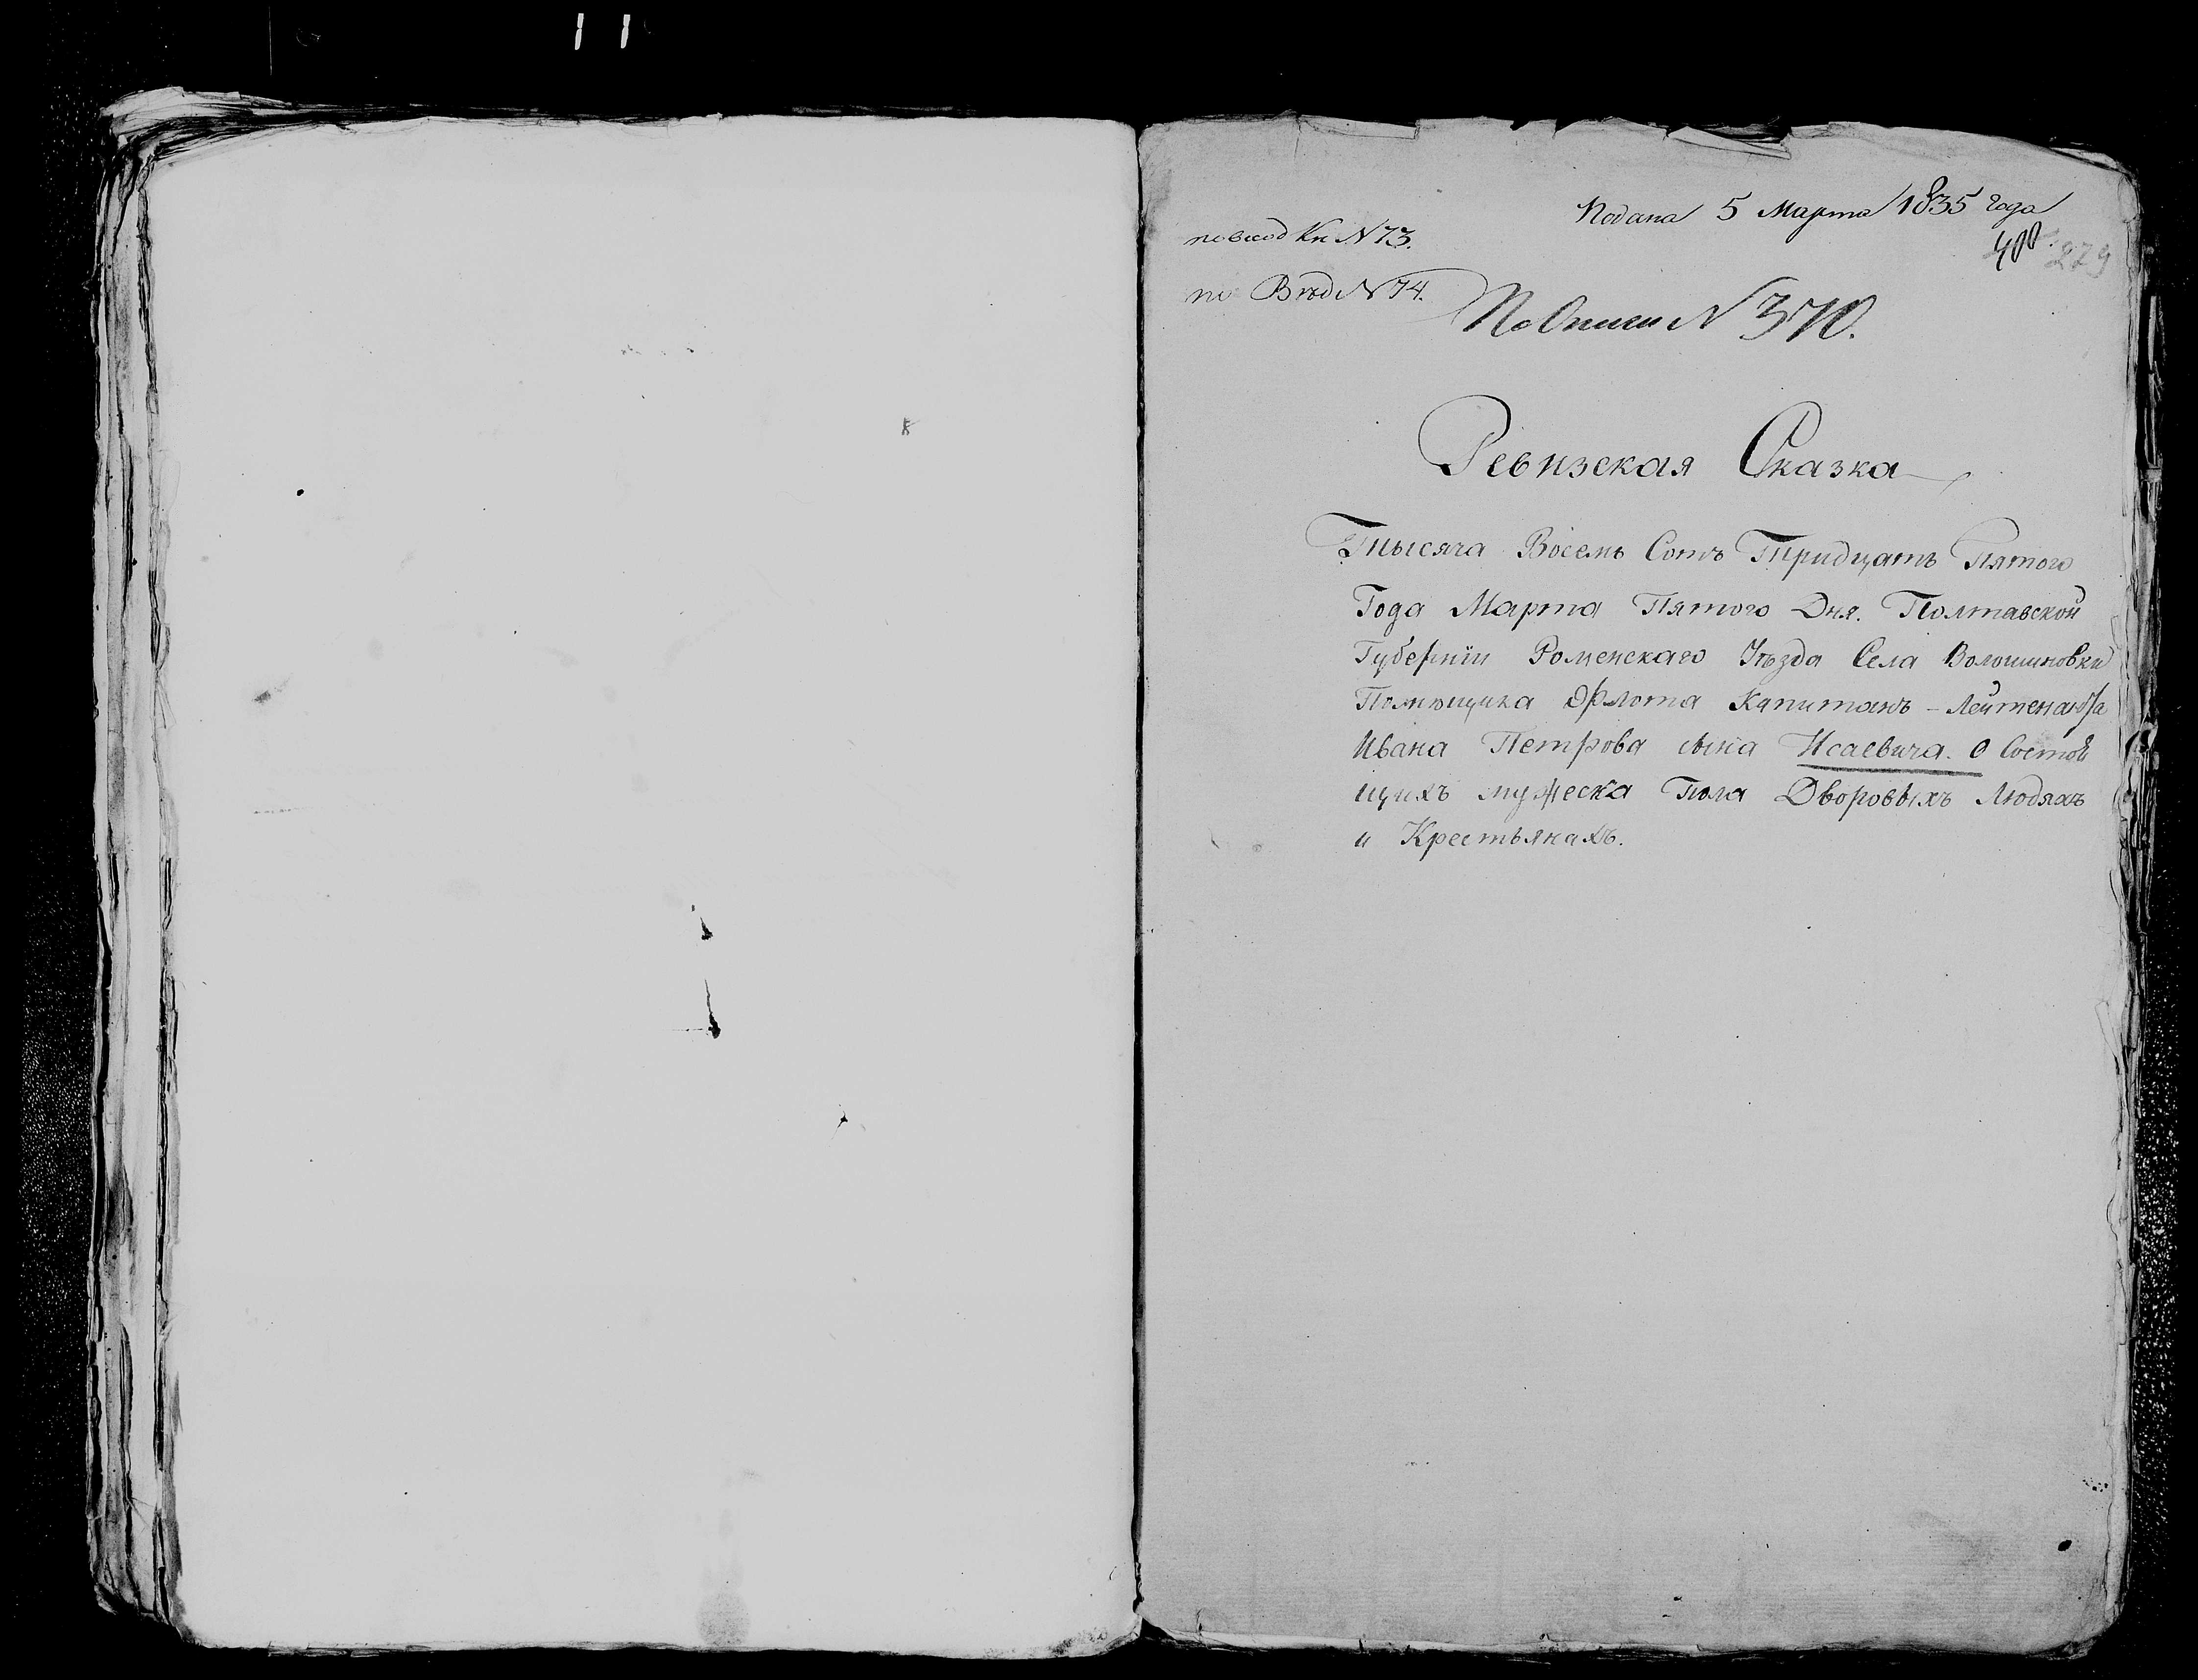 Подана 5 Марта 1835 года
по вход Кн N 73.
400. 279
по Вѣд N 74.
По Описи N 370.
Ревизская Сказка
Тысяча Восемь Сотъ Тридцать Пятого
Года Марта Пятого Дня. Полтавской
Губерніи Роменскаго Уѣзда Села Волошиновки
Помѣщика Флота Капитанъ-Лейтенанта
Ивана Петрова сына Исаевича. О Состоя
щихъ мужеска Пола Дворовыхъ Людяхъ
и Крестьянахъ.